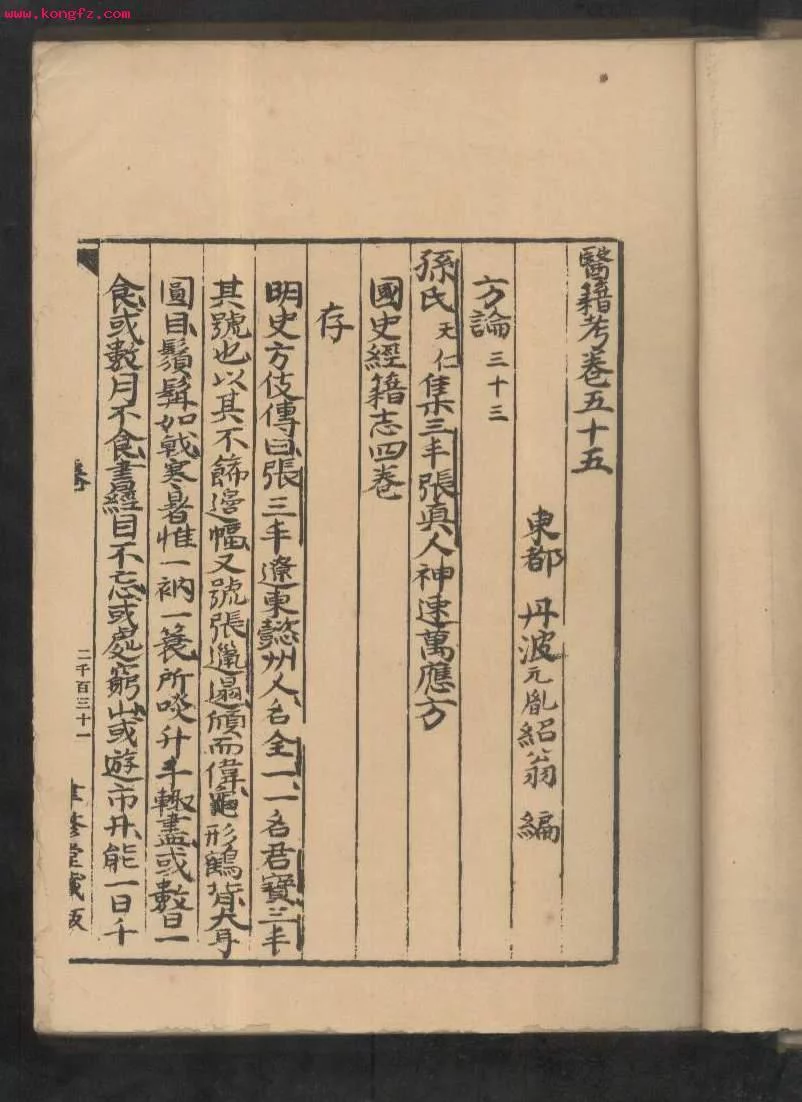 www.kongfz.com
醫籍考卷五十五
東都 丹波元胤紹翁 編
方論三十三
孫氏天仁集三丰張真人神速萬應方
國史經籍志四卷
存
明史方伎傳曰張三丰遼東懿州人名全一一名君寶三丰
其號也以其不飾邊幅又號張邋遢頎而偉龜形鶴背大耳
圓目鬚髯如戟寒暑惟一衲一蓑所啖升斗輒盡或數日一
食或數月不食書經目不忘或處窮山或遊市井能一日千
二千百三十一
聿修堂藏版